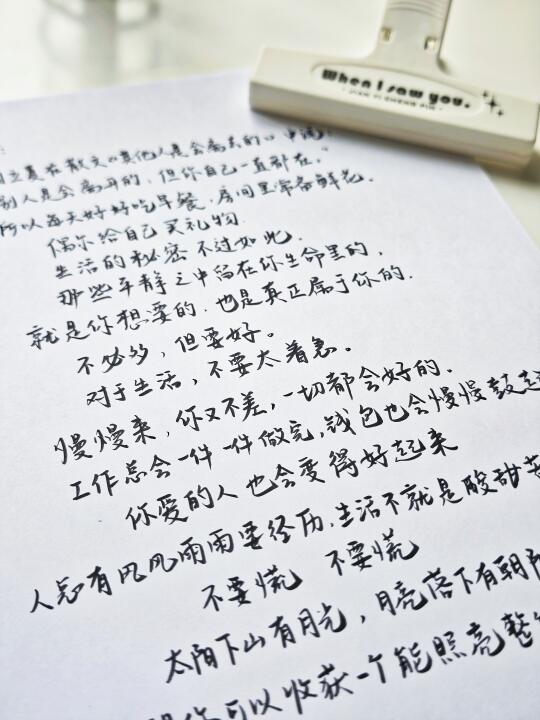 When I saw you.
夏在散文《其他人是会离去的》中说:
别人是会离开的，但你自己一直都在。"
所以每天好好吃早餐，房间里常备鲜花。
偶尔给自己买礼物
生活的秘密不过如此.
那些平静之中留在你生命里的，
就是你想要的.也是真正属于你的.
不必多，但要好。
对于生活，不要太着急。
慢慢来，你又不差，一切都会好的.
工作总会一件一件做完,钱包也会慢慢鼓起
你爱的人也会变得好起来
人总有风风雨雨要经历,生活不就是酸甜苦
不要慌 不要慌
太阳下山有月光，月亮落下有朝阳
你可以收获一个能照亮整个